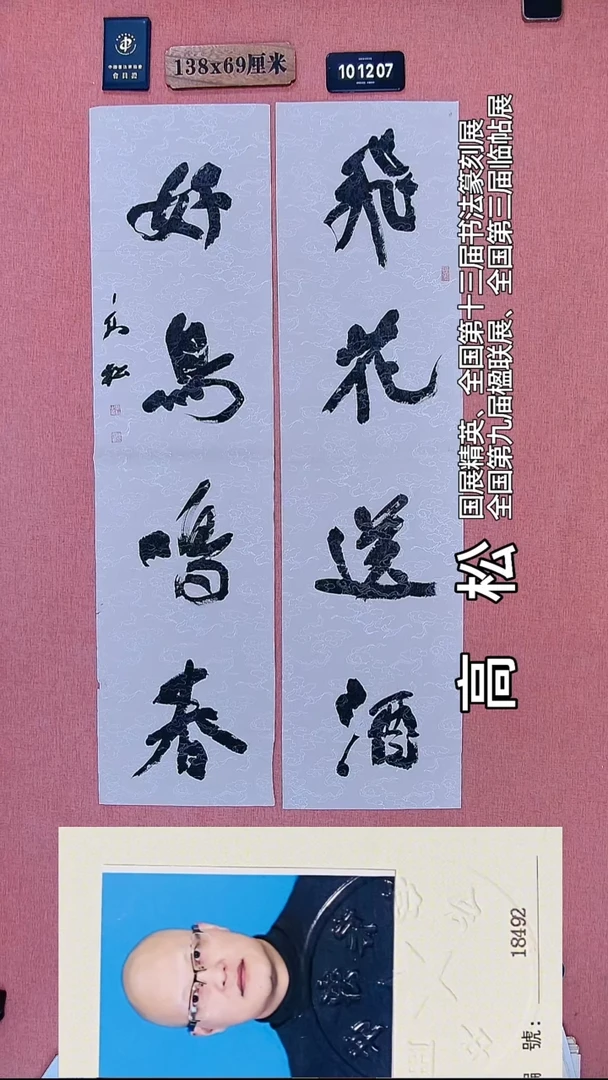 中國書法家協會
會員證
138x69厘米
10 12 07
飛花送酒
好鳥鳴春
国展精英、全国第十三届书法篆刻展
全国第九届楹联展、全国第三届临帖展
高 松
號:
18492